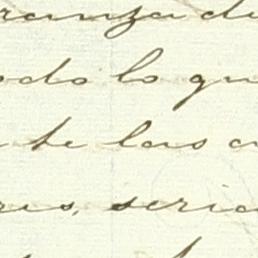 ranza de
odo lo qu
te las a
res, seria